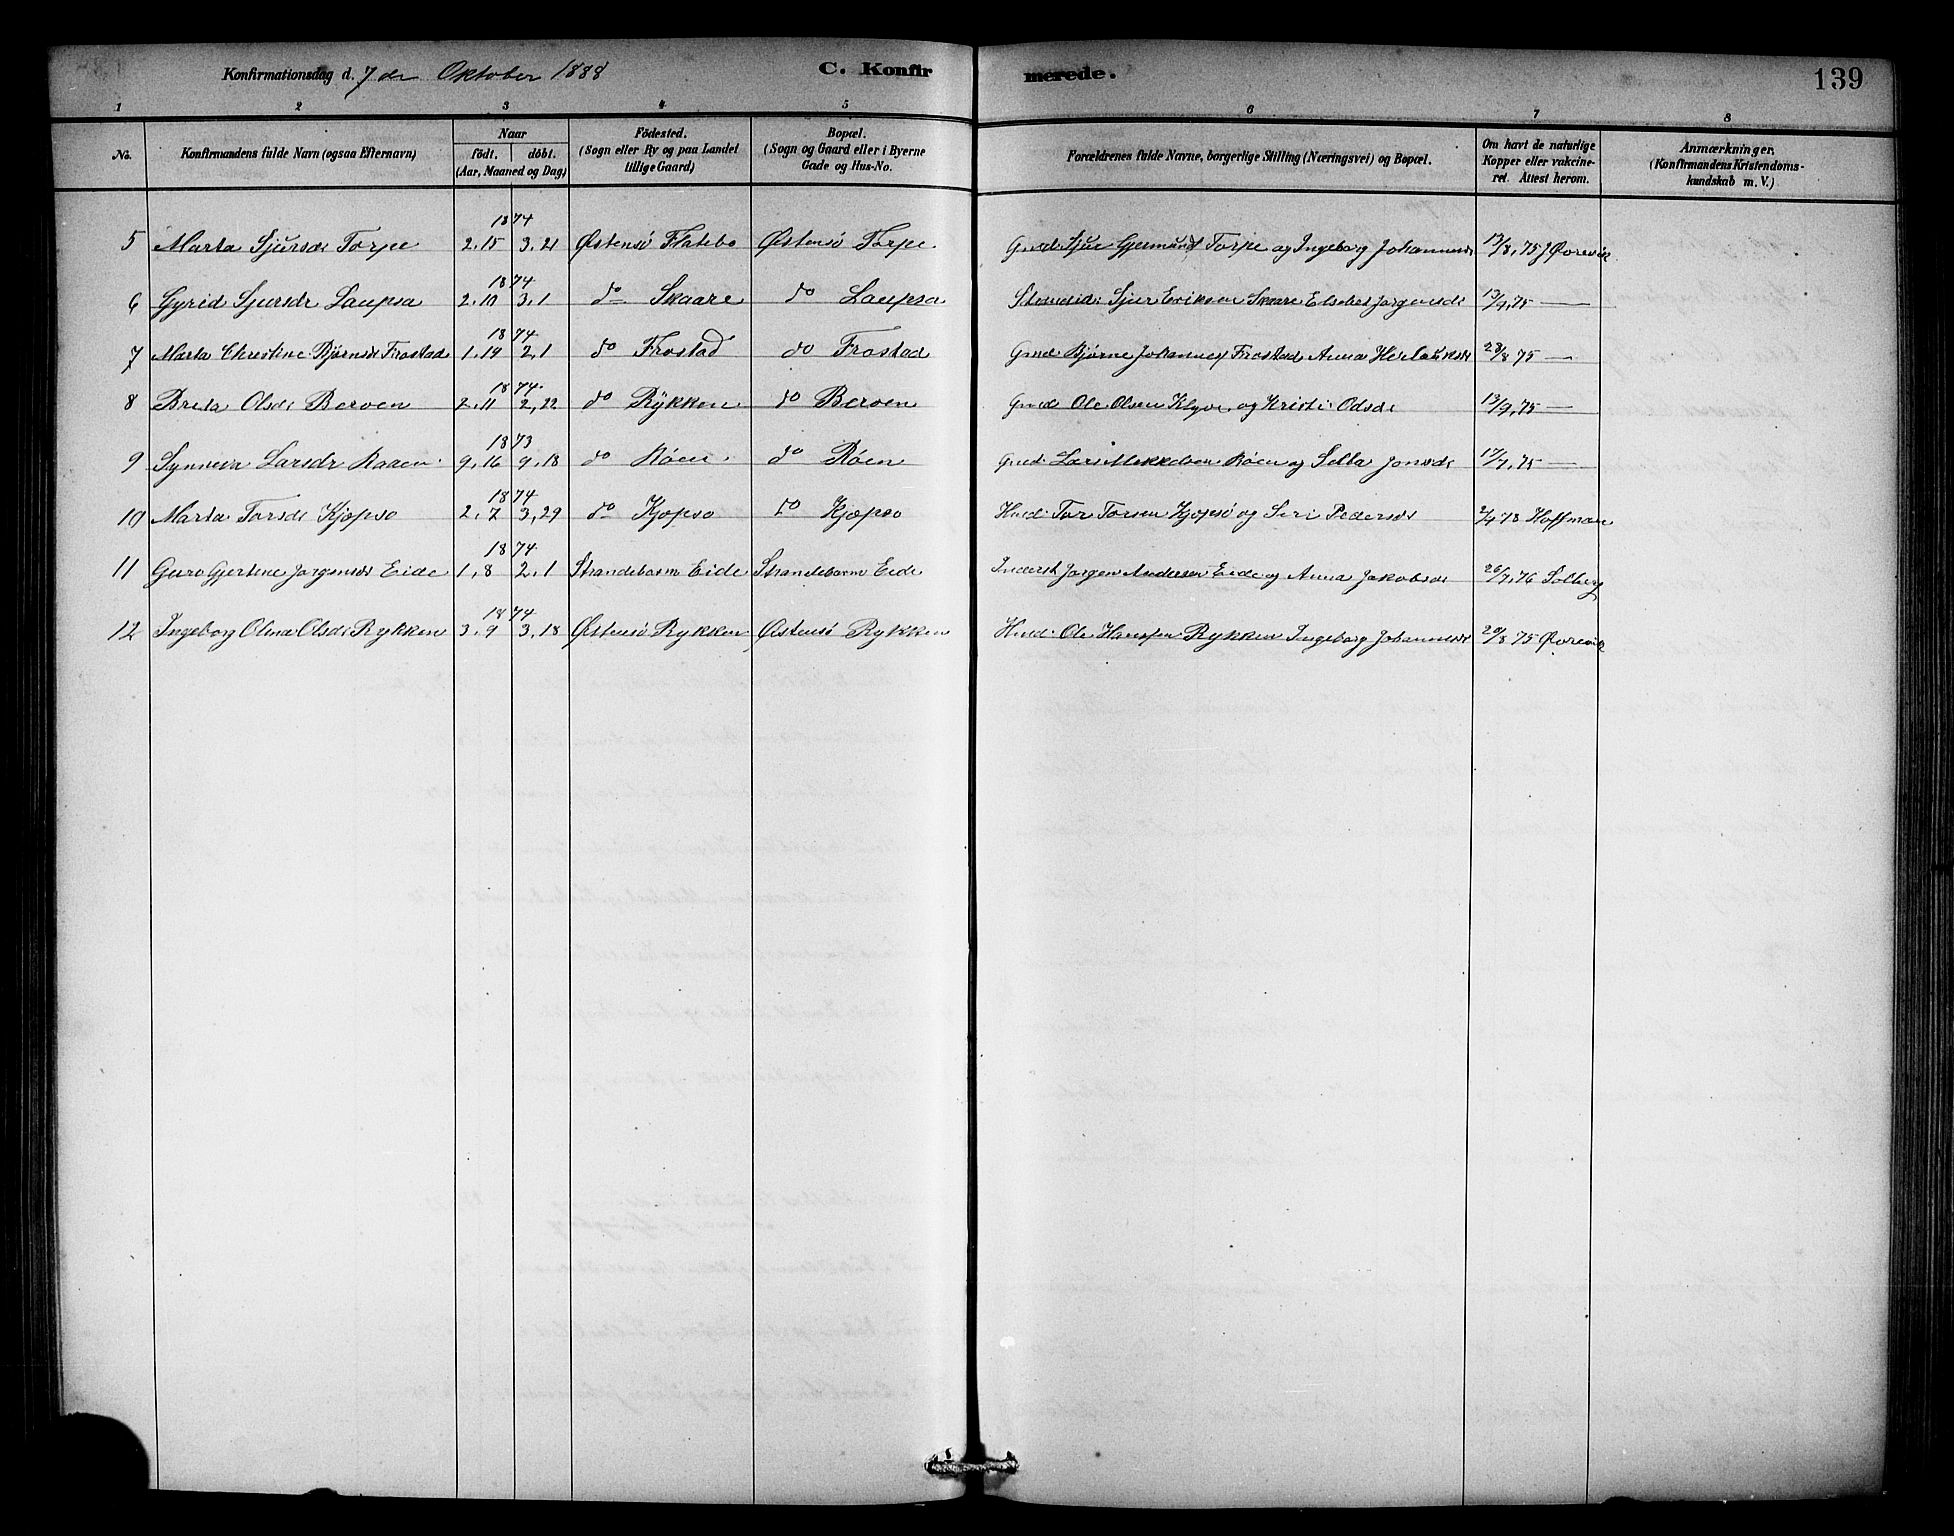 Konfirmationsdag d. 7 de Oktober 1888 C. Konfirmerede. 139
1 2 3 4 5 6 7 8
No. Konfirmandens fulde Navn (ogsaa Efternavn) Naar födt. döbt. (Aar, Maaned og Dag) Födested. (Sogn eller By og paa Landet tillige Gaard) Bopæl. (Sogn og Gaard eller i Byerne Gade og Hus-No. Forældrenes fulde Navne, borgerlige Stilling (Næringsvei) og Bopæl. Om havt de naturlige Kopper eller vakcineret. Attest herom. Anmærkninger. (Konfirmandens Kristendomskundskab m. V.)
1874
5 Marta Sjursdr Torpe 2,15 3,21 Østensö Flatebo Østensö Torpe Gmd: Sjur Gjermunds Torpe og Ingeborg Johannesdr 13/8,75 J Øvrevik
1874
6 Gyrid Sjursdr Laupsa 2,10 3,1 do Skaare do Laupsa Sjur Eriksen Skaare Elsebet Jørgensdr 13/9,75 —
1874
7 Marta Christine Bjørnsdr Frostad 1,19 2,1 do Frostad do Frostad Gmd Bjørne Johannes Frostad Anna Herlauksdr 28/8 75 —
1874
8 Breta Olsdr Berven 2,11 2,22 do Rykken do Berven Gmd Ole Olsen Klyve og Kristi Odsdr 13/9,75 —
1873
9 Synneva Larsdr Raaen 9,16 9,18 do Röen do Röen Gmd: Lars Mikkelsen Röen og Sella Jonsdr 17/7,75 —
1874
10 Marta Torsdr Kjopso 2,7 3,29 do Kjopso do Kjopso Husd: Tor Torsen Kjopsö og Siri Pedersdr 2/4 78 Hoffman
1874
11 Guro Gjertine Jorgensdr Eide 1,8 2,1 Strandebarm Eide Strandebarm Eide Inderst Jorgen Andersen Eide og Anna Jakobsdr 26/7,76 Solberg
1874
12 Ingeborg Olina Olsdr Rykken 3,9 3,18 Østensö Rykken Østensö Rykken Husd: Ole Hansen Rykken Ingeborg Johannesdr 20/8 75 Øvrevik